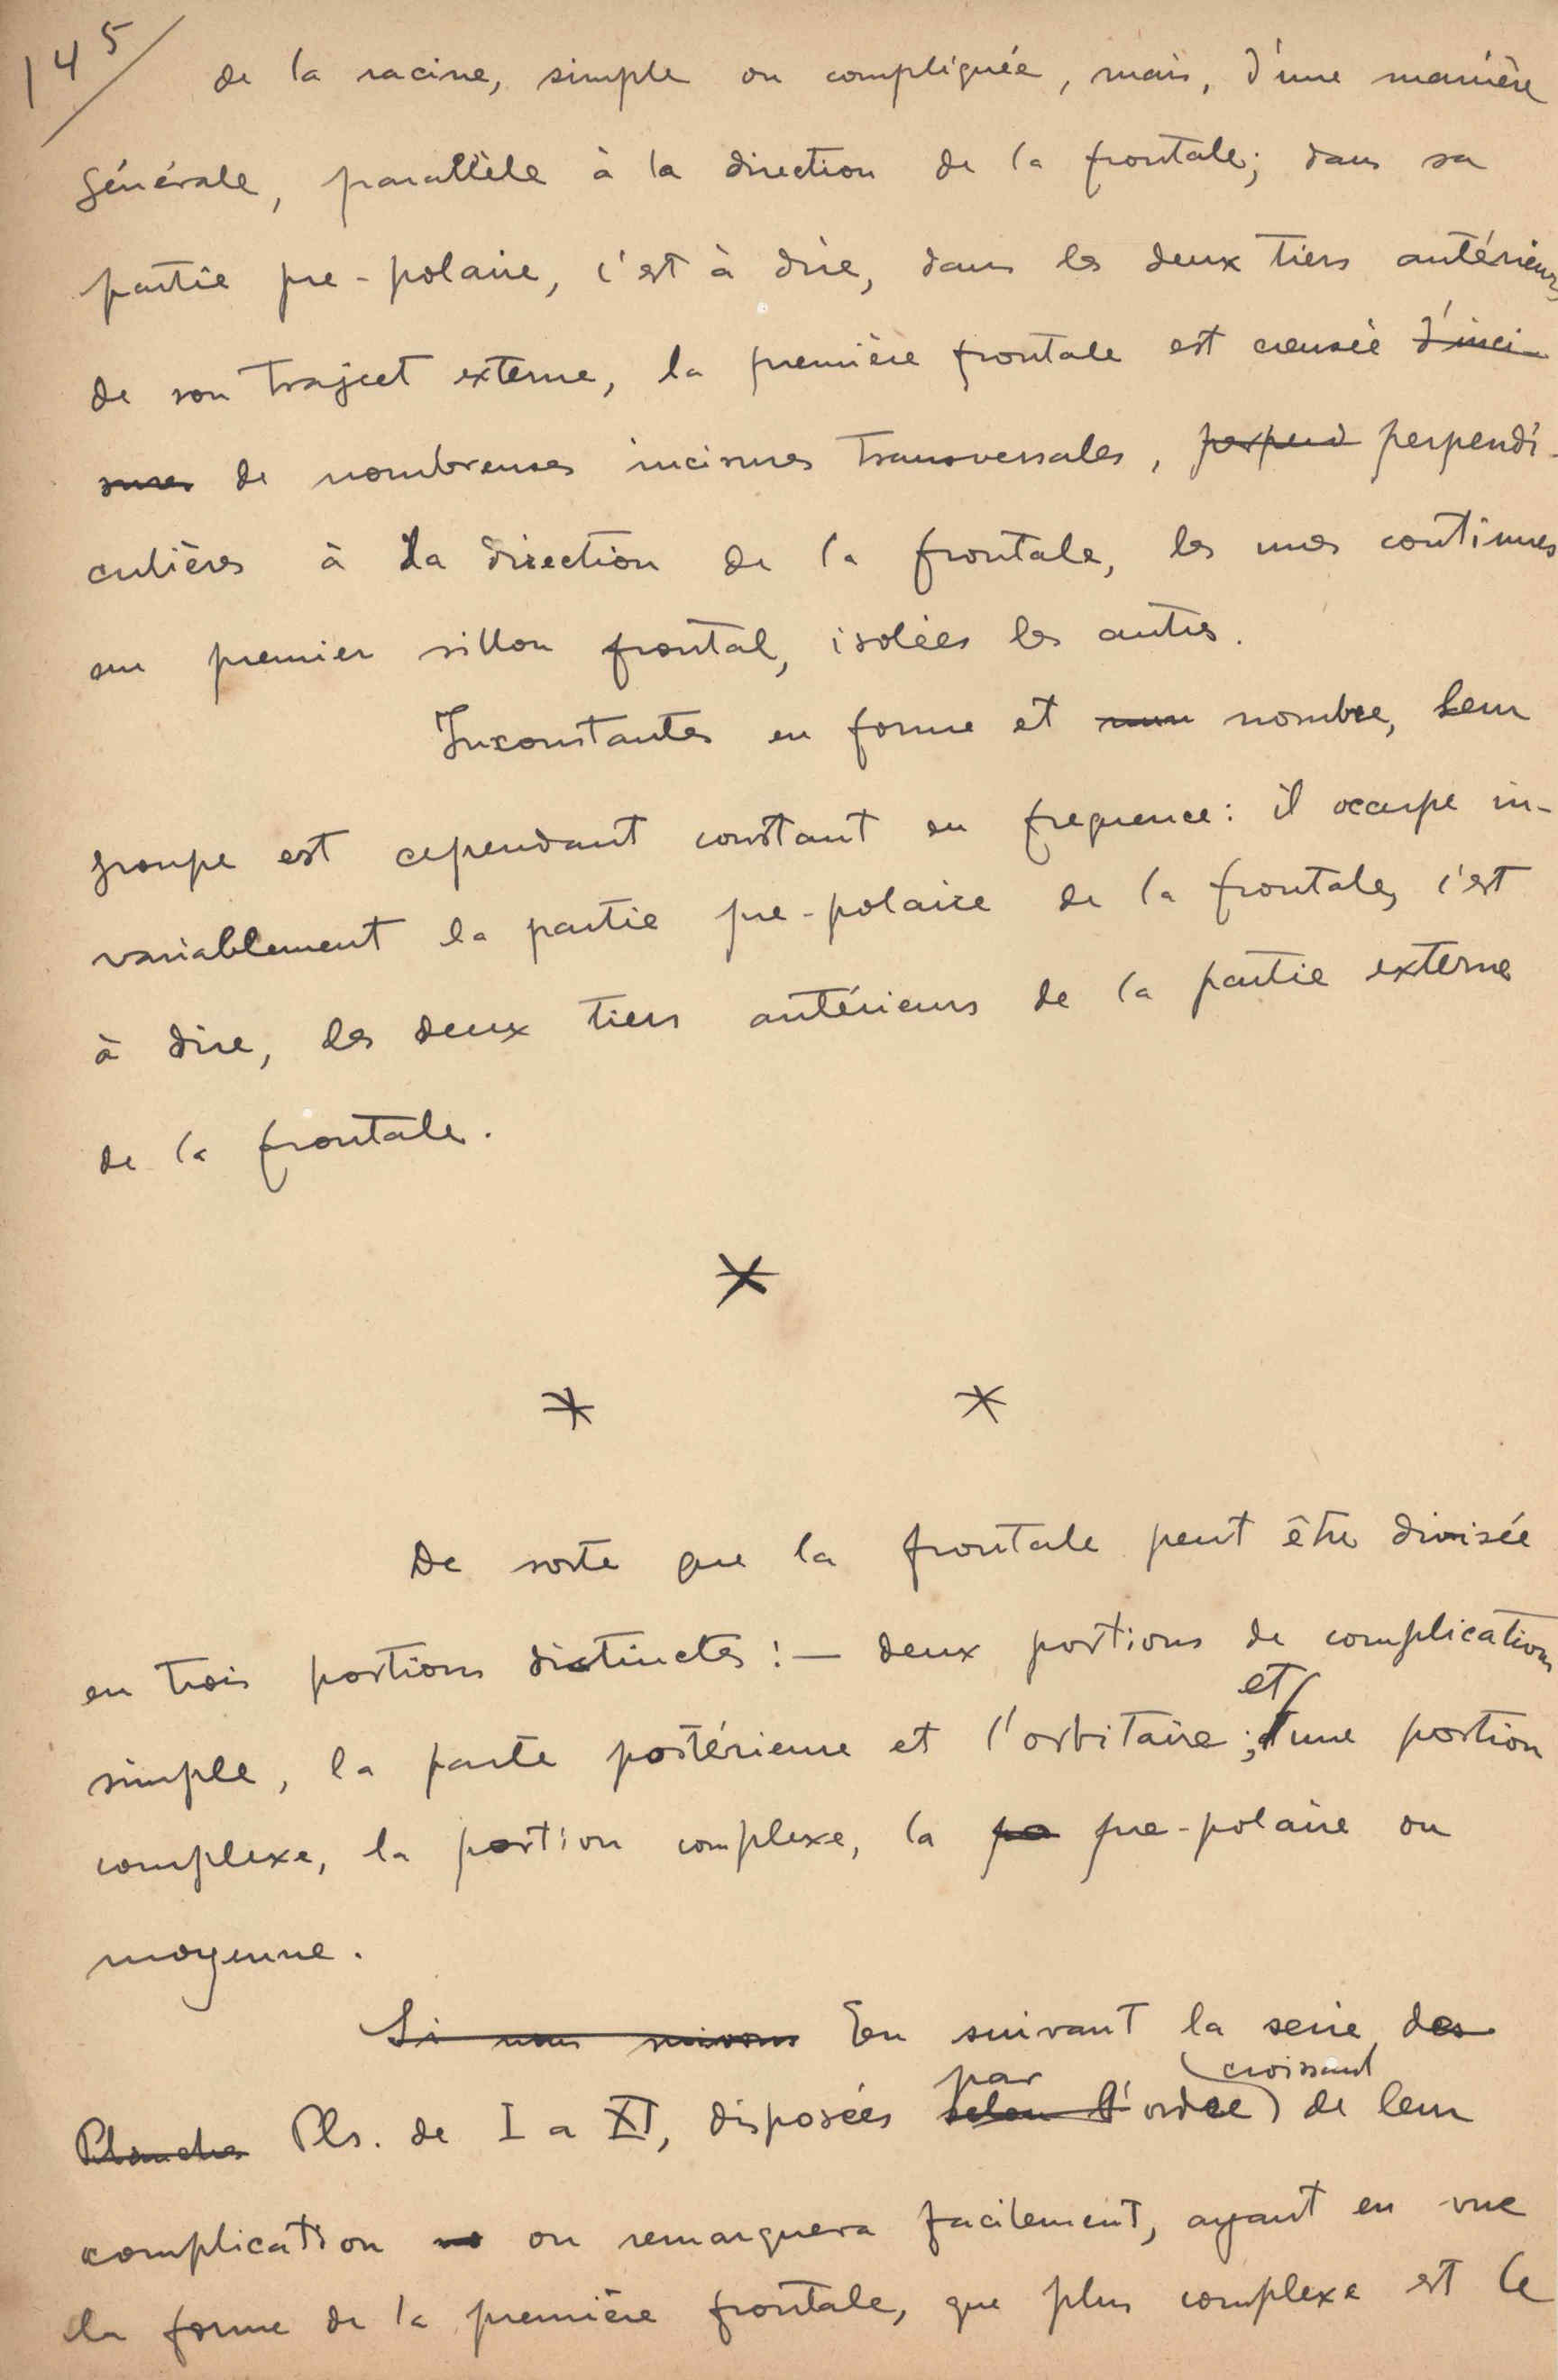 145
de la racine, simple ou compliquée, mais, d'une manière
générale, parallèle à la direction de la frontale; dans sa
partie pre-polaire, c'est à dire, dans les deux tiers antérieurs
de son trajet externe, la première frontale est creusée d'inci-
sures de nombreuses incisures transversales, perpend perpendi-
culières à la direction de la frontale, les unes continues
au premier sillon frontal, isolées les autres.
Inconstantes en forme et num nombre, leur
groupe est cependant constant en frequence: il occupe in-
variablement la partie pre-polaire de la frontale, c'est
à dire, les deux tiers antérieurs de la partie externe
de la frontale.
*
* *
De sorte que la frontale peut être divisée
en trois portions distinctes: — deux portions de complication
et
simple, la parte postérieure et l'orbitaire; une portion
complexe, la portion complexe, la pa pre-polaire ou
moyenne.
Si nous suivons En suivant la serie des
par croissant
Planches Pls. de I a XI, disposées selon l'ordre de leur
complication on remarquera facilement, ayant en vue
la forme de la première frontale, que plus complexe est le